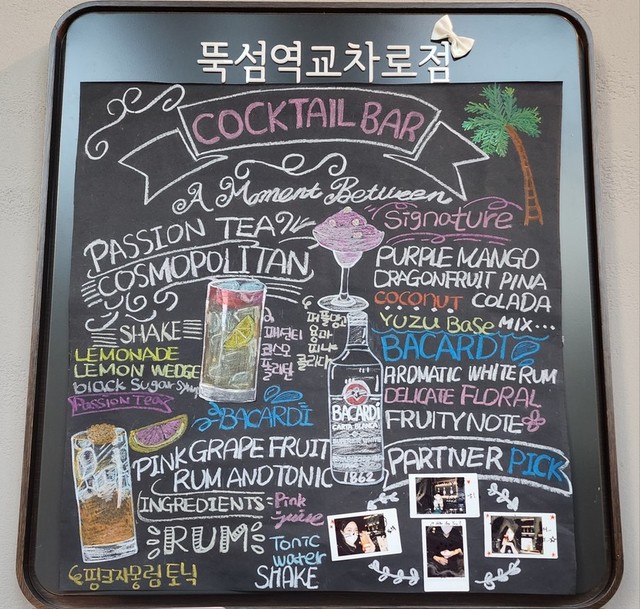 뚝섬역교차로점
COCKTAIL BAR
A Moment Between
PASSION TEA
COSMOPOLITAN
SHAKE
LEMONADE
LEMON WEDGE
black Sugar Syrup
PASSION TEA
패션티
코스모
폴리탄
BACARDI
PINK GRAPE FRUIT
RUM AND TONIC
INGREDIENTS:
Pink
juice
RUM
Tonic
water
SHAKE
핑크자몽럼토닉
Signature
PURPLE MANGO
DRAGONFRUIT PINA
COCONUT COLADA
YUZU BASE MIX...
퍼플망고
용과
피나
콜라다
BACARDI
AROMATIC WHITE RUM
DELICATE FLORAL
FRUITY NOTE
BACARDI
CARTA BLANCA
SUPERIOR WHITE
1862
PARTNER PICK